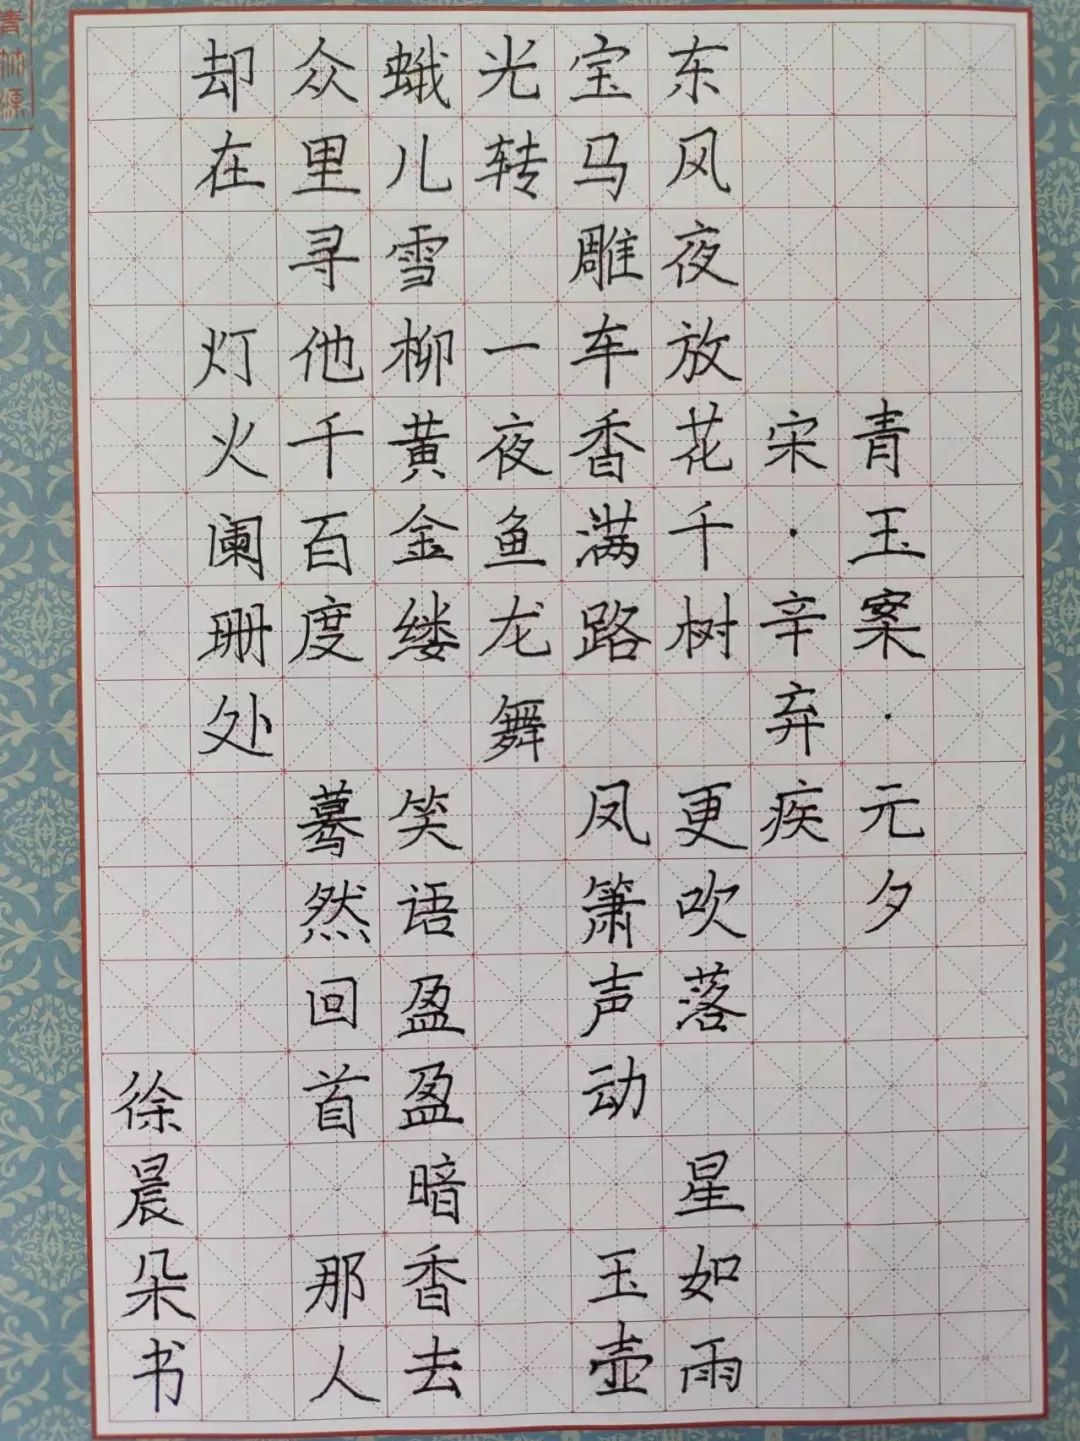 青玉案·元夕
宋·辛弃疾
东风夜放花千树 更吹落 星如雨
宝马雕车香满路 凤箫声动 玉壶
光转 一夜鱼龙舞
蛾儿雪柳黄金缕 笑语盈盈暗香去
众里寻他千百度 蓦然回首 那人
却在 灯火阑珊处
徐晨朵书